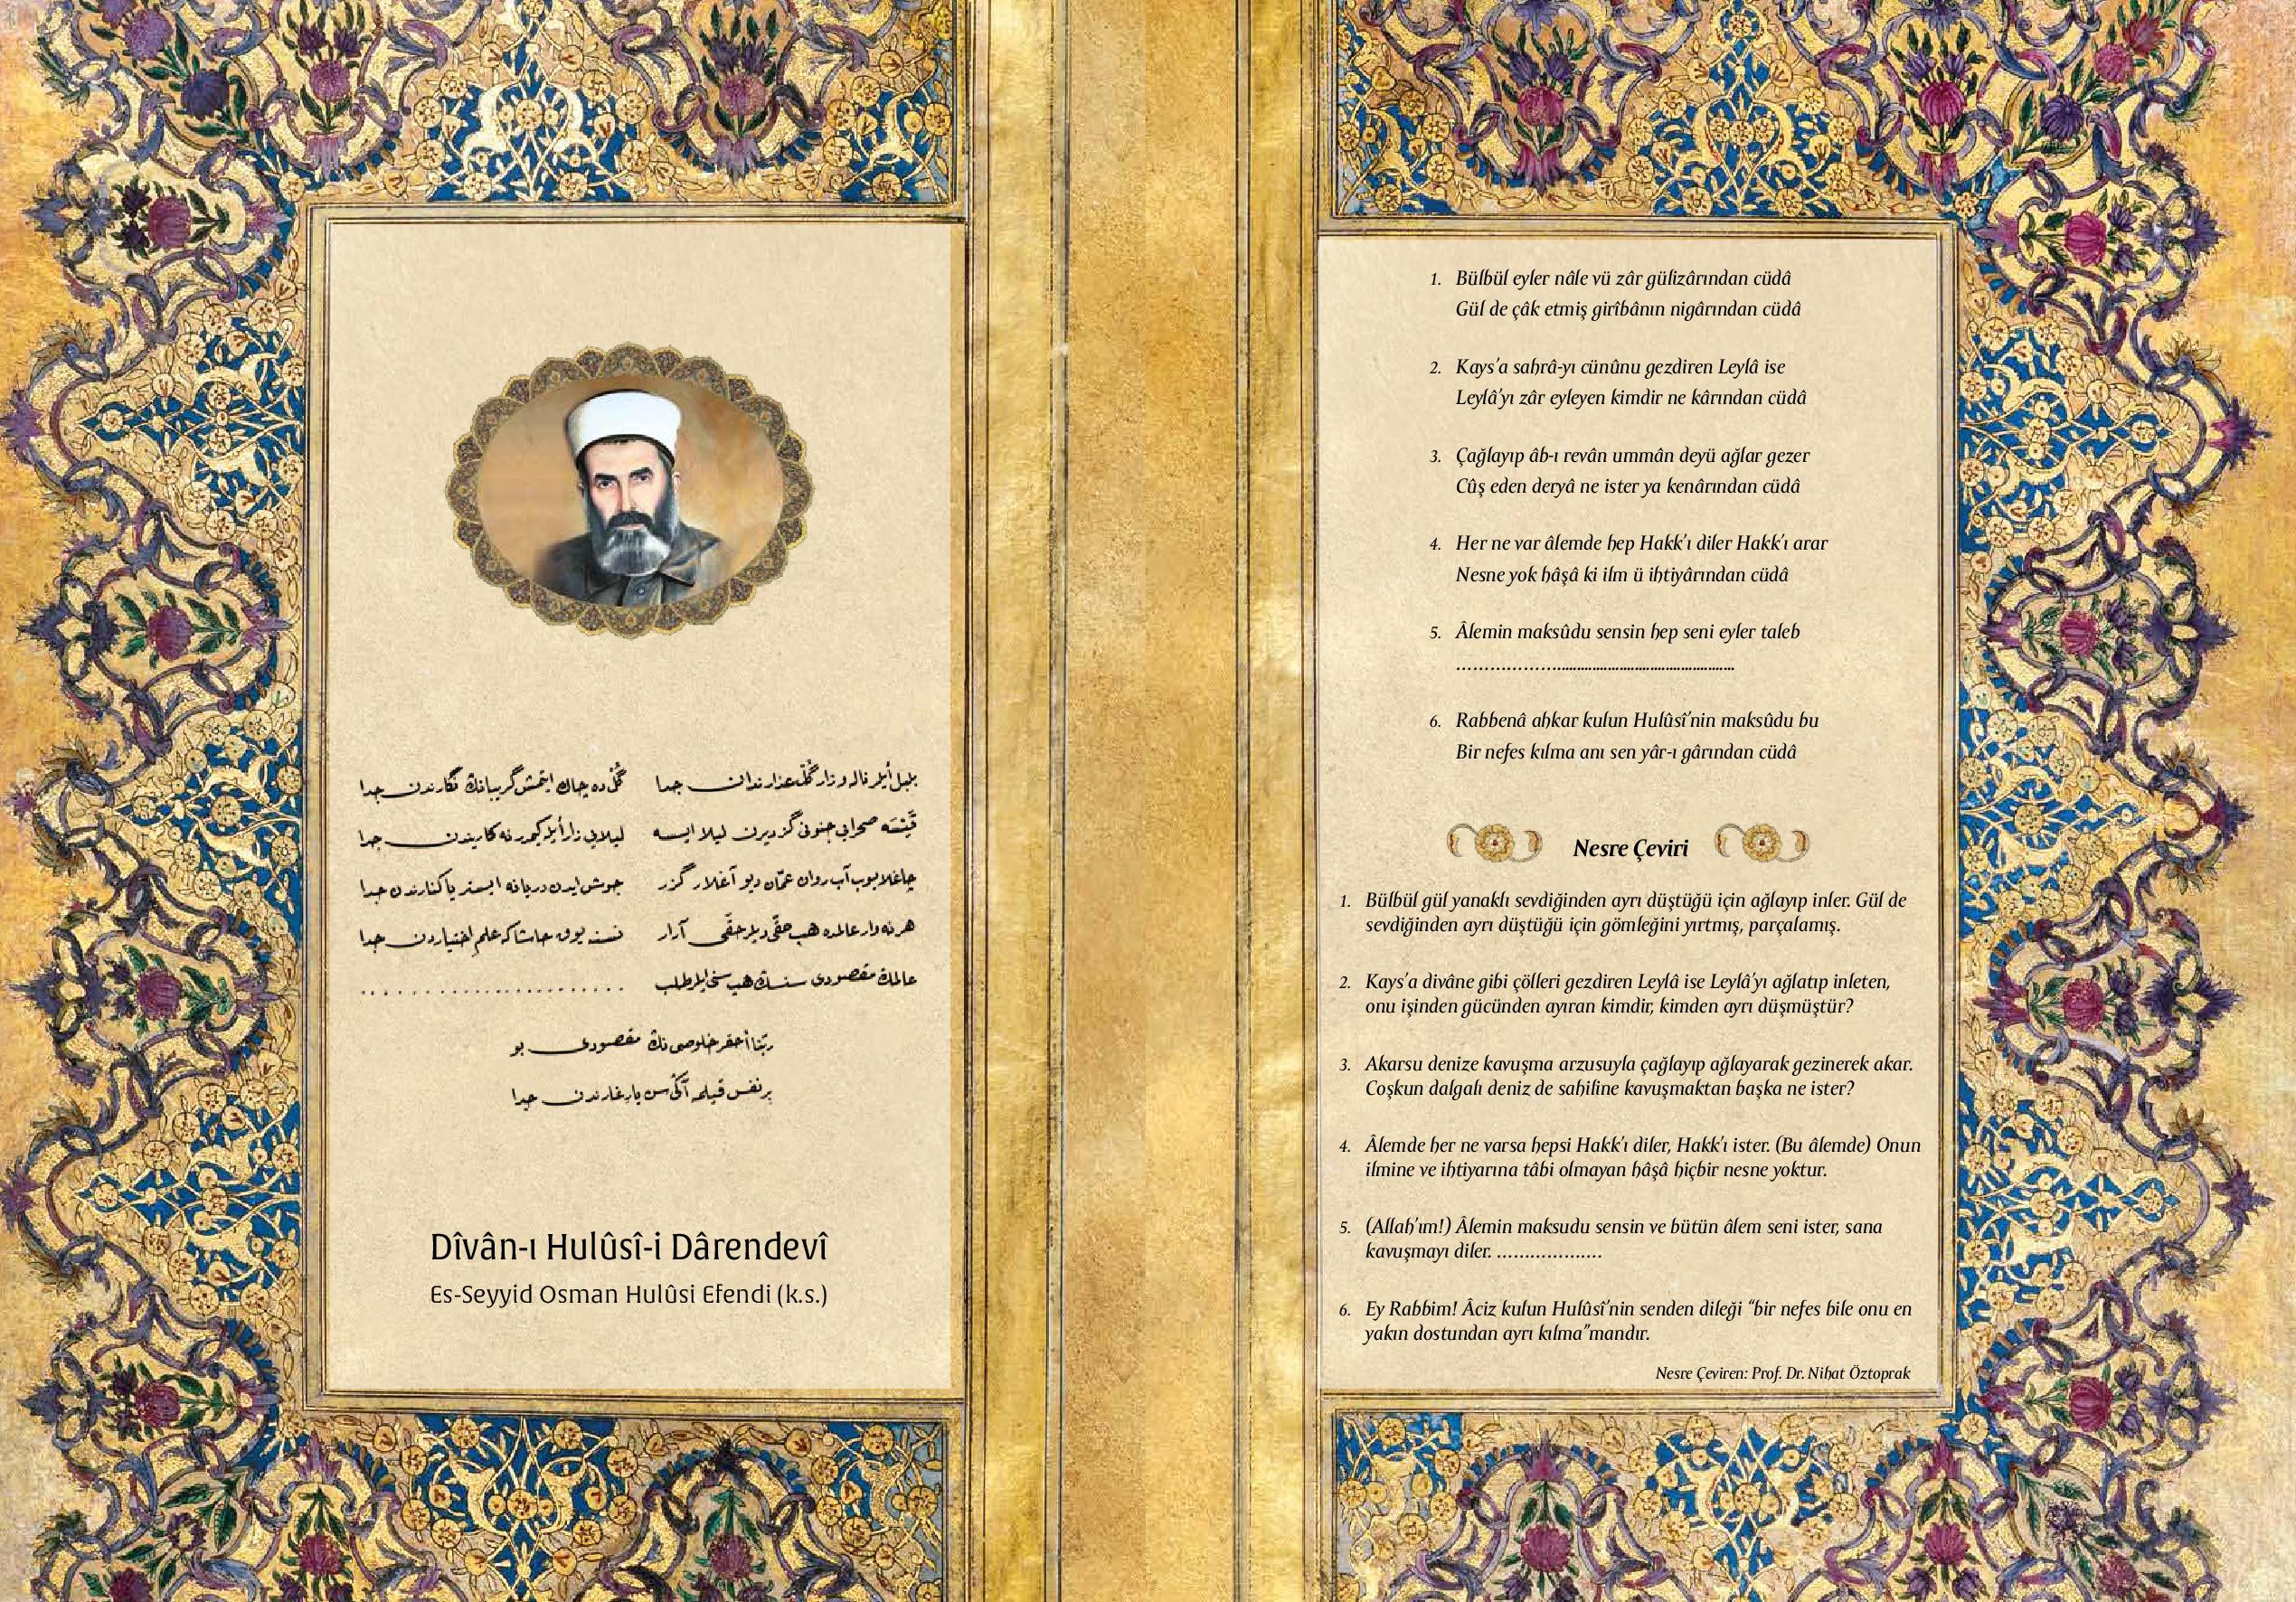 بلبل أيلر ناله و زار گل عذارندان جدا گل ده چاك ايتمش گريبانڭ نگارندن جدا
قيسه صحرايى جنونى گزديرن ليلا ايسه ليلايى زار أيله‌ين كيمدر نه كاريندن جدا
چاغلايوب آب روان عمّان ديو آغلار گزر جوش ايدن دريا نه ايستر يا كنارندن جدا
هر نه وار عالمده هب حقّى ديلر حقّى آرار نسنه يوق حاشا كه علم اختياردن جدا
عالمڭ مقصودى سنسڭ هب سنى ايلر طلب . . . . . . . . . . . . . . . . . . . .
ربّنا أحقر خلوصى نڭ مقصودى بو
بر نفس قيلمه آنى سن يار غارندن جدا
Dîvân-ı Hulûsî-i Dârendevî
Es-Seyyid Osman Hulûsi Efendi (k.s.)
1. Bülbül eyler nâle vü zâr gülizârından cüdâ
Gül de çâk etmiş girîbânın nigârından cüdâ
2. Kays'a sahrâ-yı cünûnu gezdiren Leylâ ise
Leylâ'yı zâr eyleyen kimdir ne kârından cüdâ
3. Çağlayıp âb-ı revân ummân deyü ağlar gezer
Cûş eden deryâ ne ister ya kenârından cüdâ
4. Her ne var âlemde hep Hakk'ı diler Hakk'ı arar
Nesne yok hâşâ ki ilm ü ihtiyârından cüdâ
5. Âlemin maksûdu sensin hep seni eyler taleb
..............................................................
6. Rabbenâ ahkar kulun Hulûsî'nin maksûdu bu
Bir nefes kılma anı sen yâr-ı gârından cüdâ
Nesre Çeviri
1. Bülbül gül yanaklı sevdiğinden ayrı düştüğü için ağlayıp inler. Gül de
sevdiğinden ayrı düştüğü için gömleğini yırtmış, parçalamış.
2. Kays'a divâne gibi çölleri gezdiren Leylâ ise Leylâ'yı ağlatıp inleten,
onu işinden gücünden ayıran kimdir, kimden ayrı düşmüştür?
3. Akarsu denize kavuşma arzusuyla çağlayıp ağlayarak gezinerek akar.
Coşkun dalgalı deniz de sahiline kavuşmaktan başka ne ister?
4. Âlemde her ne varsa hepsi Hakk'ı diler, Hakk'ı ister. (Bu âlemde) Onun
ilmine ve ihtiyarına tâbi olmayan hâşâ hiçbir nesne yoktur.
5. (Allah'ım!) Âlemin maksudu sensin ve bütün âlem seni ister, sana
kavuşmayı diler. ...................
6. Ey Rabbim! Âciz kulun Hulûsî'nin senden dileği “bir nefes bile onu en
yakın dostundan ayrı kılma”mandır.
Nesre Çeviren: Prof. Dr. Nihat Öztoprak